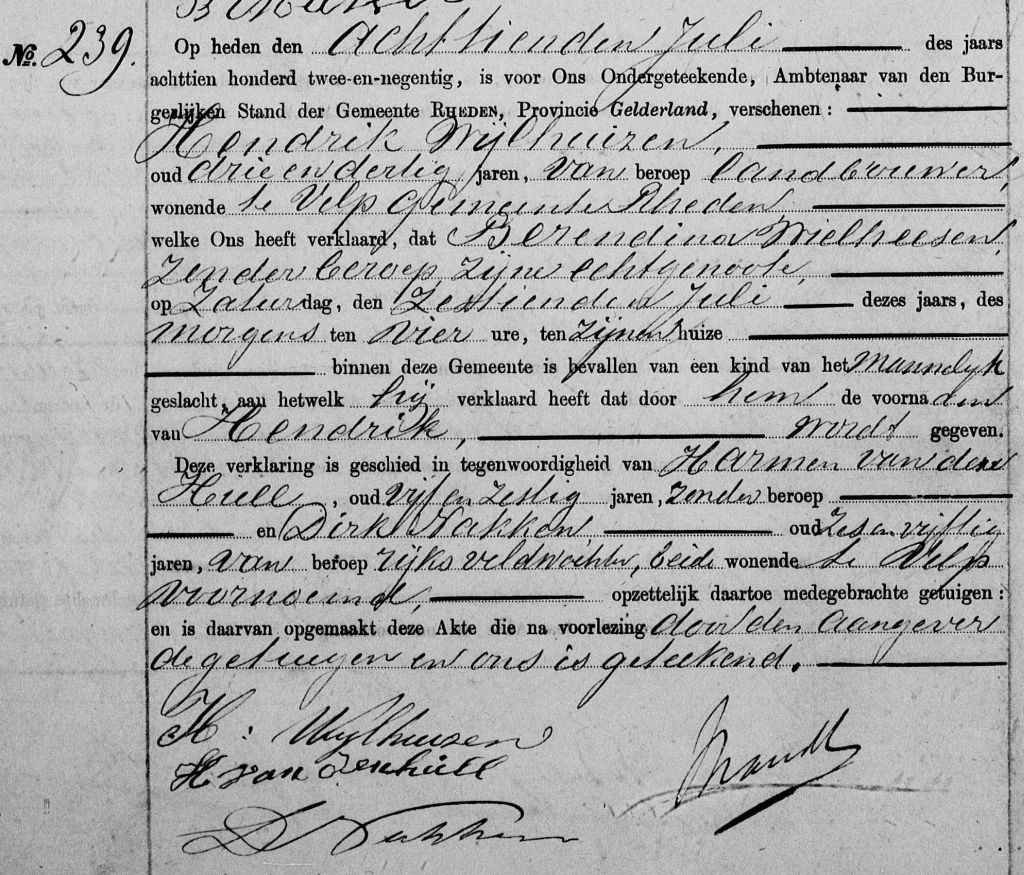 No. 239.
Op heden den achttienden Juli des jaars
achttien honderd twee-en-negentig, is voor Ons Ondergeteekende, Ambtenaar van den Bur-
gerlijken Stand der Gemeente RHEDEN, Provincie Gelderland, verschenen:
Hendrik Wijlhuizen,
oud drie en dertig jaren, van beroep landbouwer,
wonende te Velp Gemeente Rheden
welke Ons heeft verklaard, dat Berendina Wielheesen
zonder beroep zijne echtgenoote,
op Zaturdag, den zestienden Juli dezes jaars, des
morgens ten vier ure, ten zijnen huize
binnen deze Gemeente is bevallen van een kind van het mannelijk
geslacht, aan hetwelk hij verklaard heeft dat door hem de voornaden
van Hendrik, wordt gegeven.
Deze verklaring is geschied in tegenwoordigheid van Harmen van den
Hull, oud vijf en zestig jaren, zonder beroep
en Dirk Nakken, oud zes en vijftig
jaren, van beroep rijksveldwachter, beide wonende te Velp
voornoemd, opzettelijk daartoe medegebrachte getuigen:
en is daarvan opgemaakt deze Akte die na voorlezing door den aangever
de getuigen en ons is geteekend.
H: Wijlhuizen
H van den hull
D Nakken